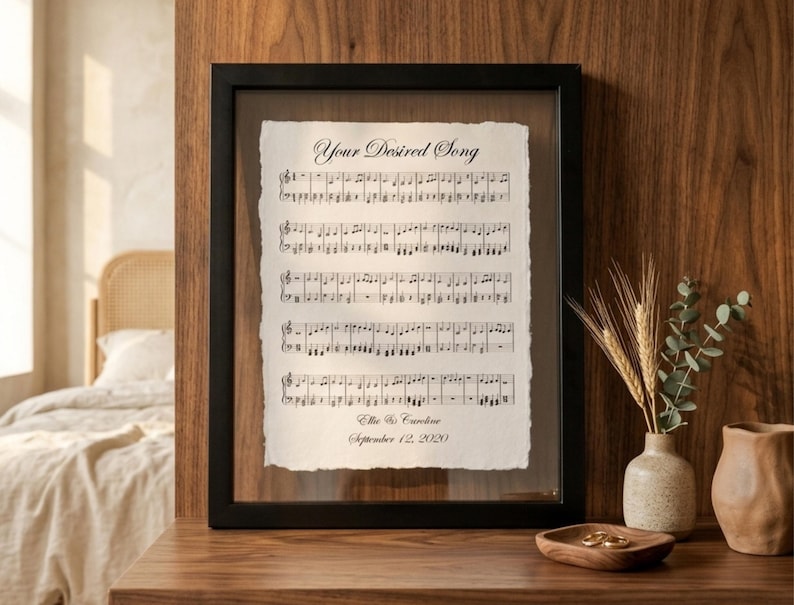 Your Desired Song
Ellie & Caroline
September 12, 2020